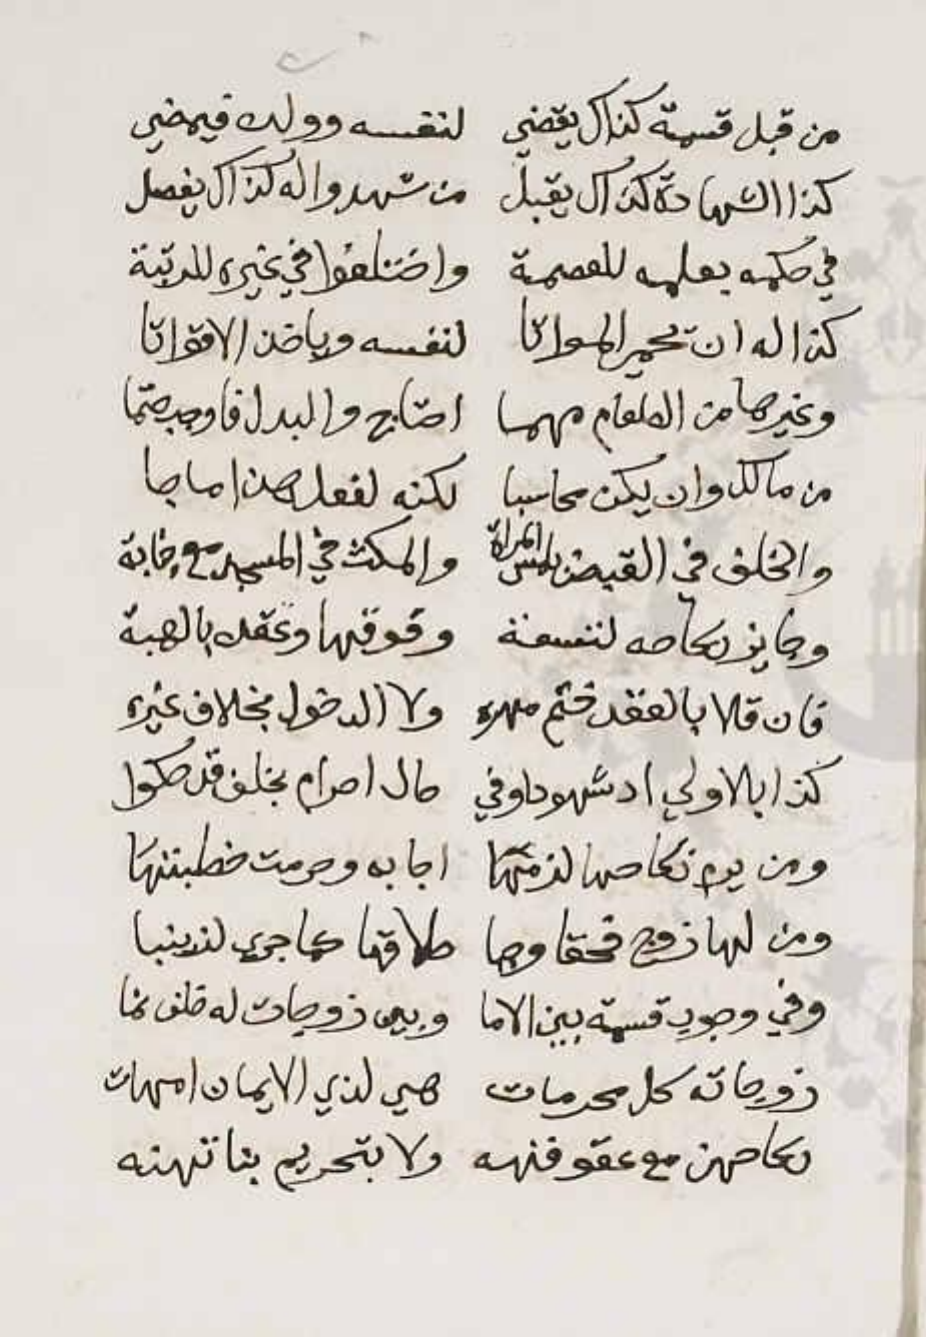 من قبل قسمة كذاك يقضي لنفسه وولده فيمضي
كذا الشهادة كذاك يقبل من شهدوا له كذاك يفصل
في حكمه بعلمه للعصمة واختلفوا في غيره للريبة
كذا له ان يحمي المواتا لنفسه وياخذ الاقواتا
وغيرها من الطعام مهما احتاج والبدل فاوجبحتما
من مالك وان يكن محاسبا لكنه لفعل هذا ما
والخلف في القبض بلمس المراة والمكث في المسجد مع جنابة
وجايز نكاحه لتسعة وفوقها وعقده بالهبة
فان قلا بالعقد حتم مهره ولا الدخول بخلاف غيره
كذا بالاولي اد شهود وفي حال احرام بخلف قد حكوا
ومن يرم نكاحها لزمتها اجابه وحرمت خطبتها
ومن لها زوج فحقا وجبا طلاقها كما جري لزينبا
وفي وجوب قسمة بين الاما وبين زوجات له خلف نما
زوجاته كل محرمات هي لذي الايمان امهات
نكاحهن مع عقوقهنه ولا بتحريم بناتهنه